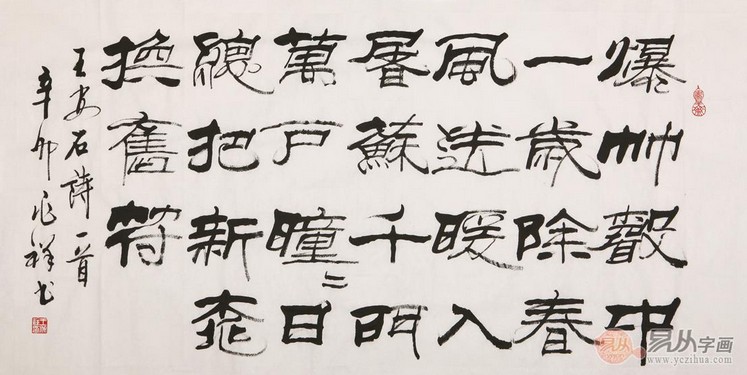 爆竹聲中
一歲除春
風送暖入
屠蘇千門
萬戶曈〻日
總把新桃
換舊符
王安石詩一首
辛卯兆祥书
易从字画
www.yczihua.com